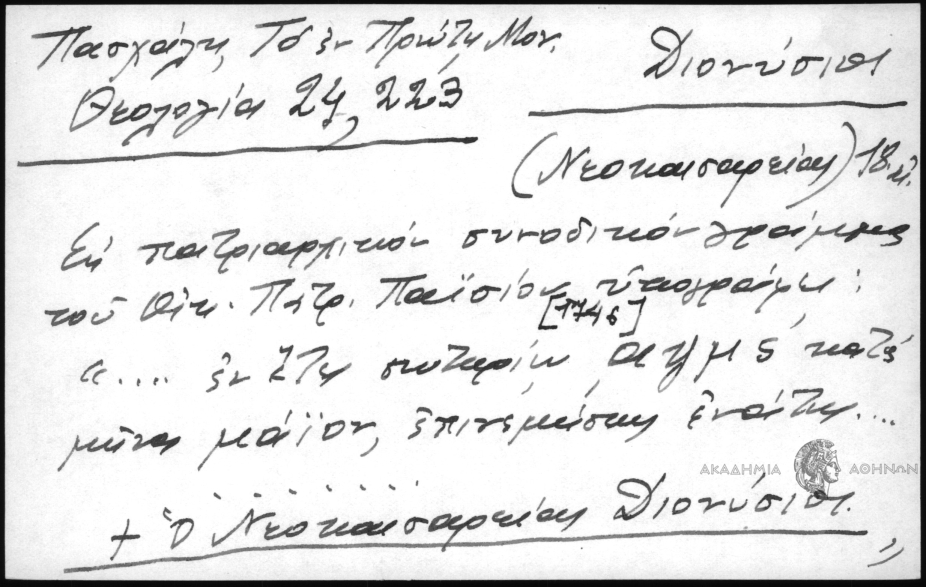 Πασχάλη, Τό ἐν Πρώτῃ Μον.
Θεολογία 24, 223
Διονύσιος
(Νεοκαισαρείας) 18 αἰ.
Εἰς πατριαρχικόν συνοδικόν γράμμα
τοῦ Οἰκ. Πατρ. Παϊσίου ὑπογράφει:
[1746]
«.... ἐν ἔτει σωτηρίῳ αψμς΄ κατά
μῆνα μάϊον, ἐπινεμήσεως ἐνάτης....
ΑΚΑΔΗΜΙΑ ΑΘΗΝΩΝ
........
+ Ὁ Νεοκαισαρείας Διονύσιος.
»